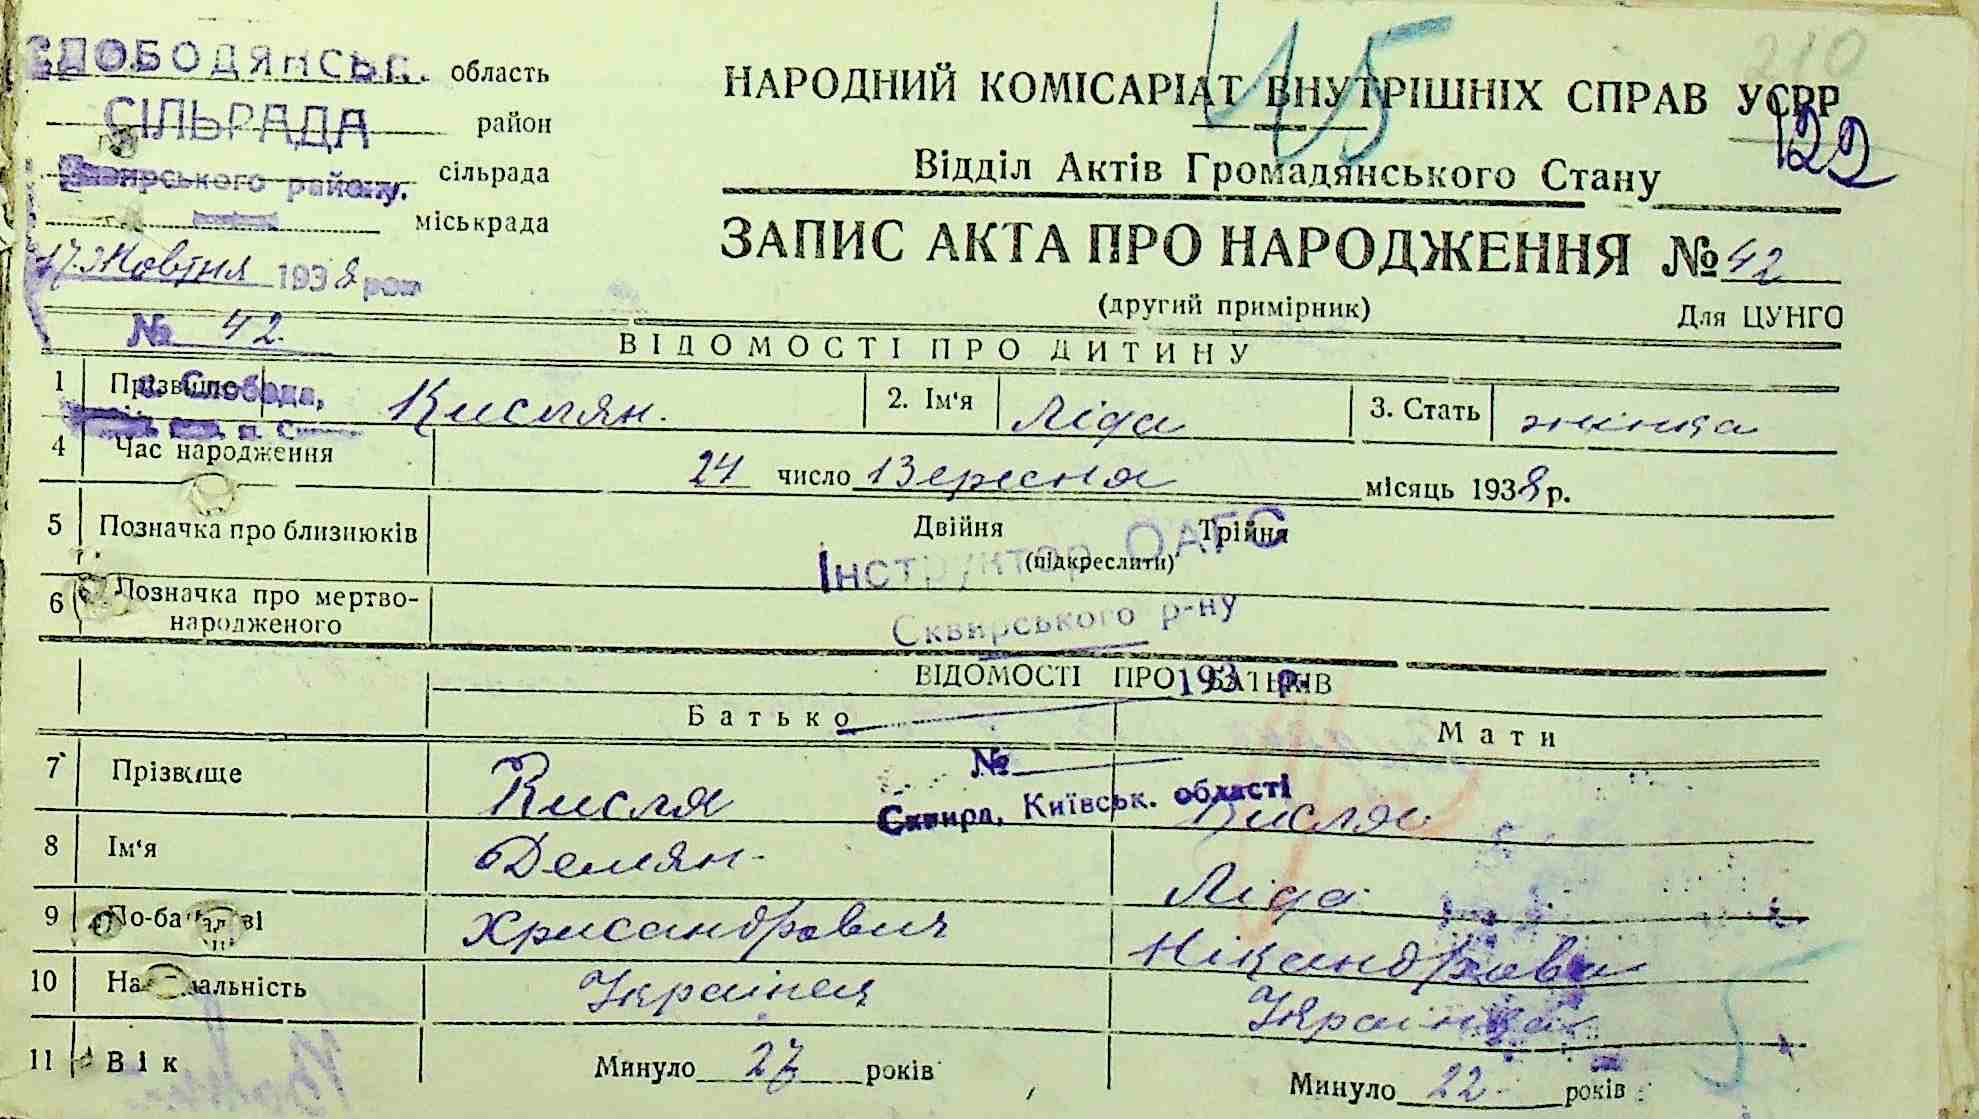 СЛОБОДЯНСЬК. область
СІЛЬРАДА район
Сквирського району. сільрада
міськрада
17 Жовтня 1938 рок
№ 42.
с. Слобода,
210
115
122
НАРОДНИЙ КОМІСАРІАТ ВНУТРІШНІХ СПРАВ УСРР
Відділ Актів Громадянського Стану
ЗАПИС АКТА ПРО НАРОДЖЕННЯ № 42
(другий примірник) Для ЦУНГО
ВІДОМОСТІ ПРО ДИТИНУ
1 Прізвище Кислян. 2. Ім'я Ліда 3. Стать жінка
4 Час народження 24 число Вересня місяць 1938 р.
5 Позначка про близнюків Двійня Трійня
(підкреслити)
Інструктор ОАГС
6 Позначка про мертво-
народженого
Сквирського р-ну
ВІДОМОСТІ ПРО БАТЬКІВ
193 р.
Батько Мати
№
Сквира, Київськ. області
7 Прізвище Кисля Кисляо
8 Ім'я Демян. Ліда
9 По-батькові Хрисандрович Нікандрова
10 Національність Українец Українка
11 Вік Минуло 27 років Минуло 22 років